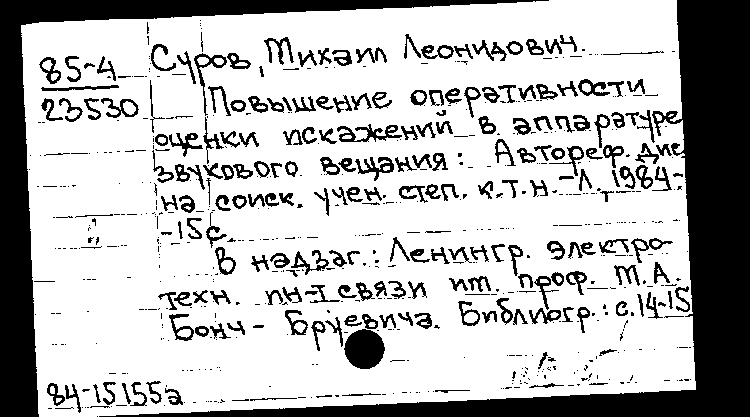 85-4
23530
Суров, Михаил Леонидович.
Повышение оперативности
оценки искажений в аппаратуре
звукового вещания: Автореф. дис
на соиск. учен. степ. к.т.н. - Л., 1984.-
-15с.
В надзаг.: Ленингр. электро-
техн. ин-т связи им. проф. М.А.
Бонч-Бруевича. Библиогр.: с.14-15
84-15155а